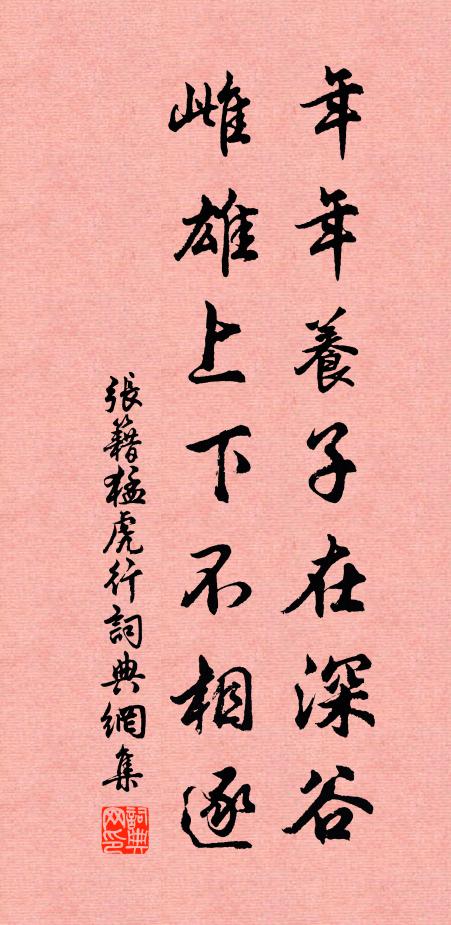 年年養子在深谷
雌雄上下不相逐
張籍猛虎行詞典網集
詞典网印